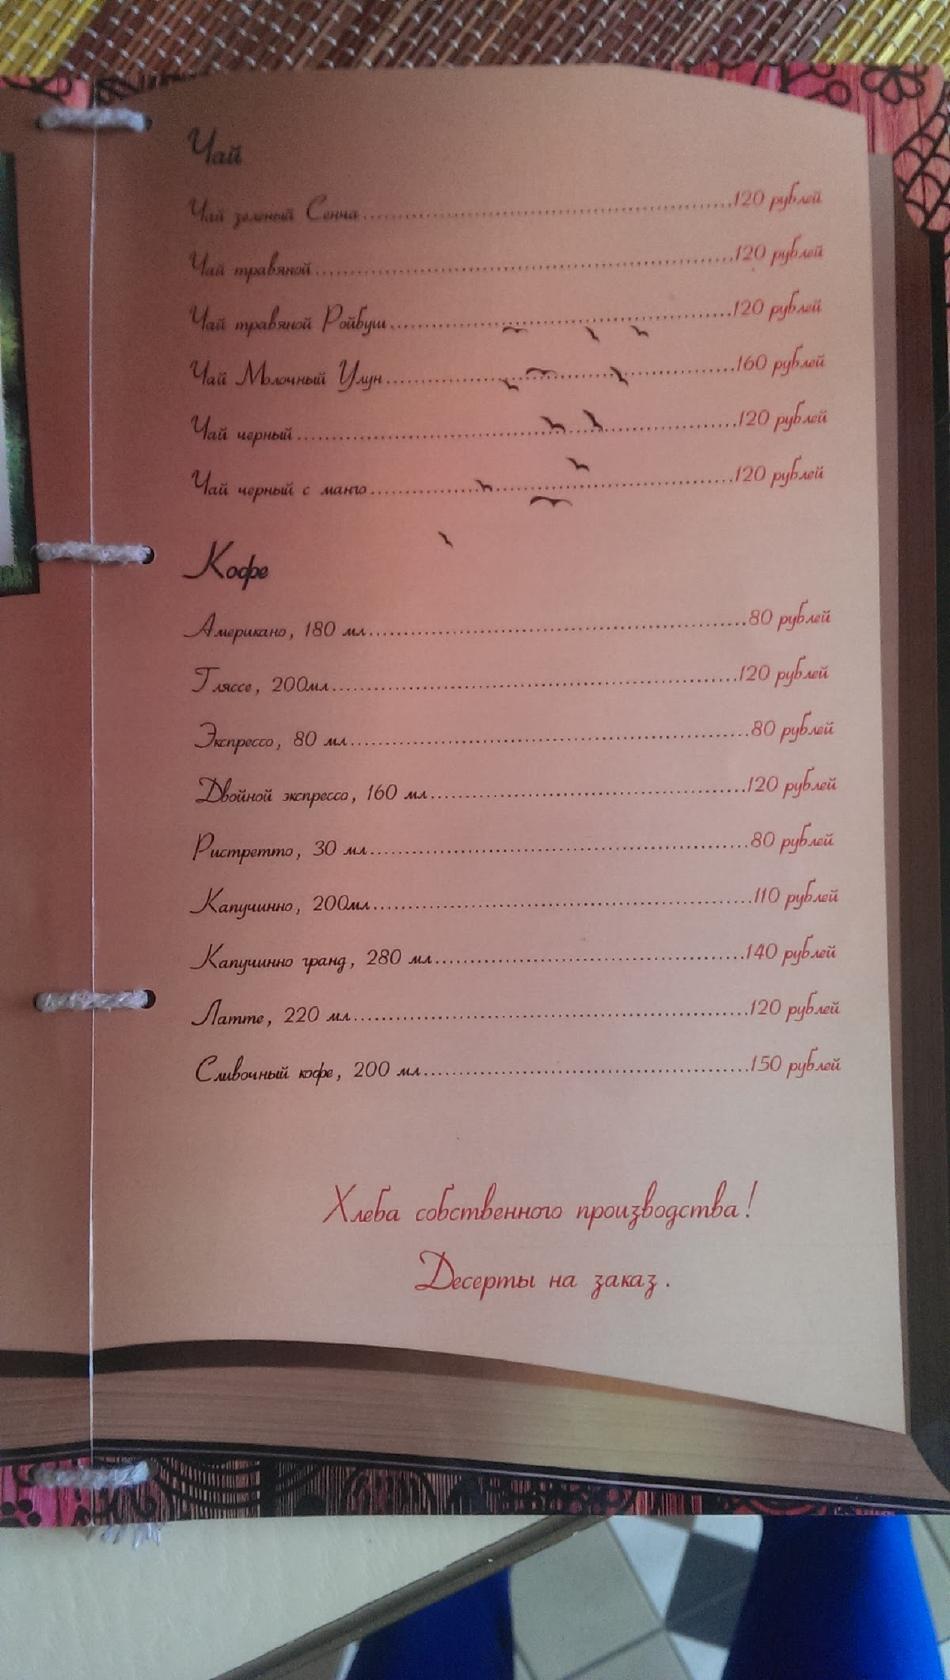 Чай
Чай зеленый Сенча........................120 рублей
Чай травяной........................120 рублей
Чай травяной Ройбуш........................120 рублей
Чай Молочный Улун........................160 рублей
Чай черный........................120 рублей
Чай черный с манго........................120 рублей
Кофе
Американо, 180 мл........................80 рублей
Гляссе, 200мл........................120 рублей
Экспрессо, 80 мл........................80 рублей
Двойной экспрессо, 160 мл........................120 рублей
Ристретто, 30 мл........................80 рублей
Капучинно, 200мл........................110 рублей
Капучинно гранд, 280 мл........................140 рублей
Латте, 220 мл........................120 рублей
Сливочный кофе, 200 мл........................150 рублей
Хлеба собственного производства!
Десерты на заказ.